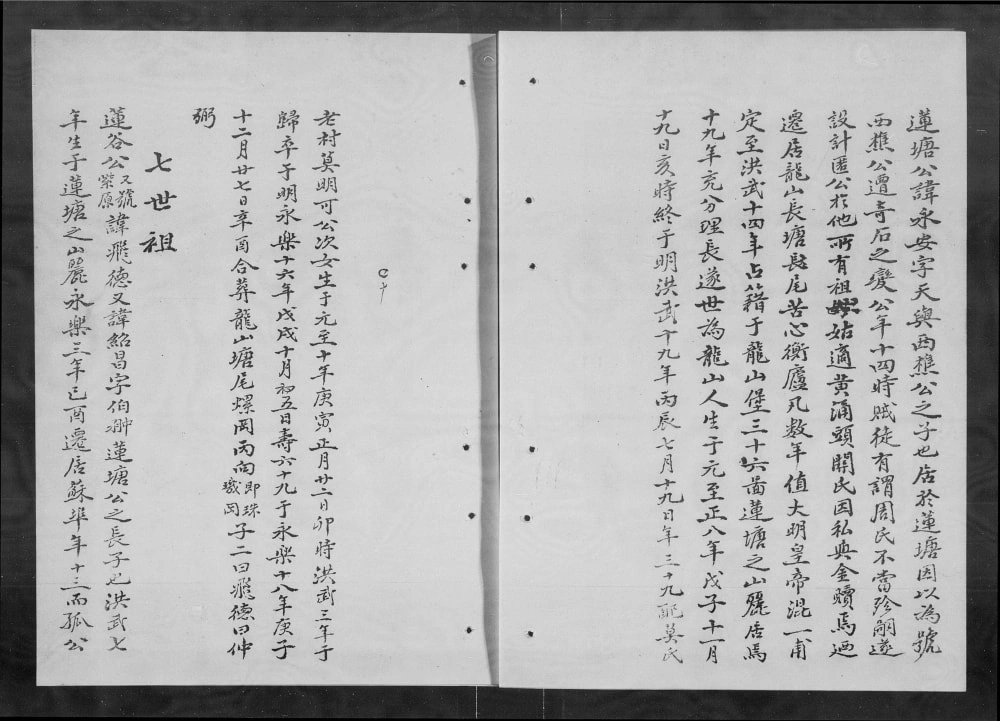 蓮塘公諱永安字天與西樵公之子也居於蓮塘因以為號
西樵公遭奇石之變公年十四時賊徒有謂周氏不當殄嗣遂
設計匿公於他所有祖姑適黄涌頭關氏因私與金贖焉迺
遷居龍山長塘長尾苦心衡廬凡数年值大明皇帝混一甫
定至洪武十四年占籍于龍山堡三十六啚蓮塘之山麗居焉
十九年充分理長遂世為龍山人生于元至正八年戊子十一月
十九日亥時終于明洪武十九年丙辰七月十九日年三十九配莫氏
老村莫明可公次女生于元至十年庚寅正月廿二日卯時洪武三年于
歸卒于明永樂十六年戊戌十月初五日壽六十九于永樂十八年庚子
十二月廿七日辛酉合葬龍山塘尾螺岡丙向即珠璣岡子二曰飛德曰仲
弼
七世祖
蓮谷公又號紫原諱飛德又諱紹昌字伯翀蓮塘公之長子也洪武七
年生于蓮塘之山麗永樂三年已酉遷居蘇埠年十三而孤公